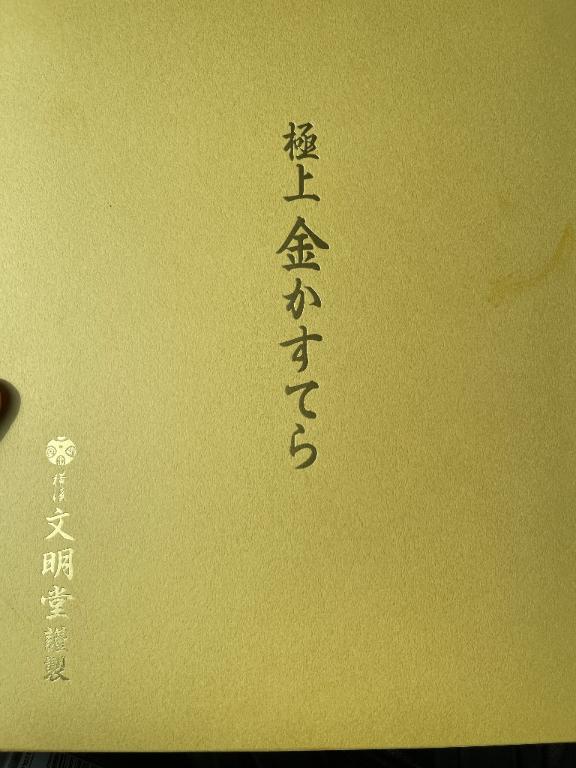 極上 金かすてら
横濱 文明堂 謹製